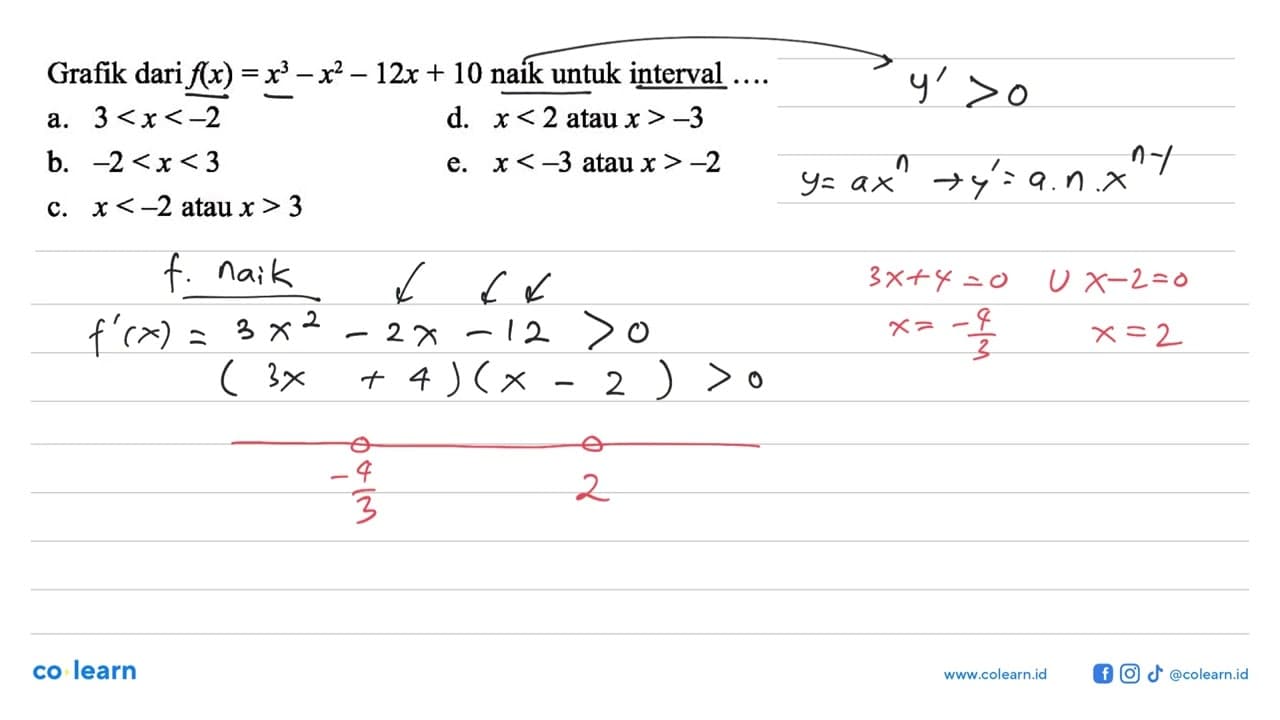 Grafik dari f(x) = x³ – x² – 12x + 10 naik untuk interval ....
a. 3 < x < –2
b. –2 < x < 3
c. x < –2 atau x > 3
d. x < 2 atau x > –3
e. x < –3 atau x > –2
y' > 0
y = axⁿ → y' = a.n.xⁿ⁻¹
f. naik
f'(x) = 3x² – 2x – 12 > 0
(3x + 4)(x – 2) > 0
3x+4 = 0 U x–2=0
x = –4/3 x = 2
–4/3 2
co learn
www.colearn.id @colearn.id